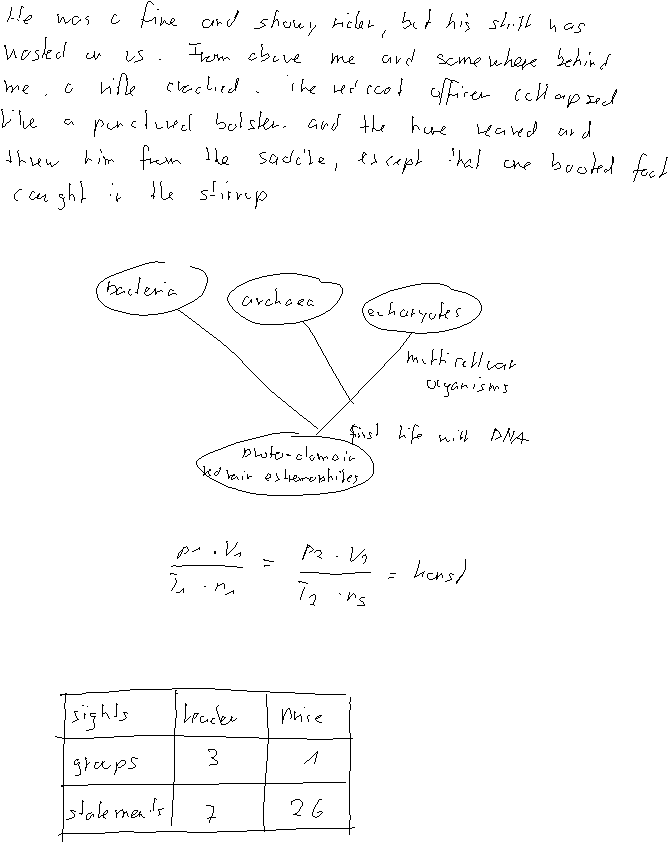 He was a fine and showy rider, but his skill was
wasted on us. From above me and somewhere behind
me, a rifle cracked. The redcoat officer collapsed
like a punctured bolster. and the horse reared and
threw him from the saddle, except that one booted foot
caught in the stirrup
bacteria
archaea
eucharyotes
multicellular
organisms
first life with DNA
proto-domain
extremophiles
p1 · V1 / T1 · n1 = p2 · V2 / T2 · n2 = konst
sights | header | price
groups | 3 | 1
statements | 7 | 26